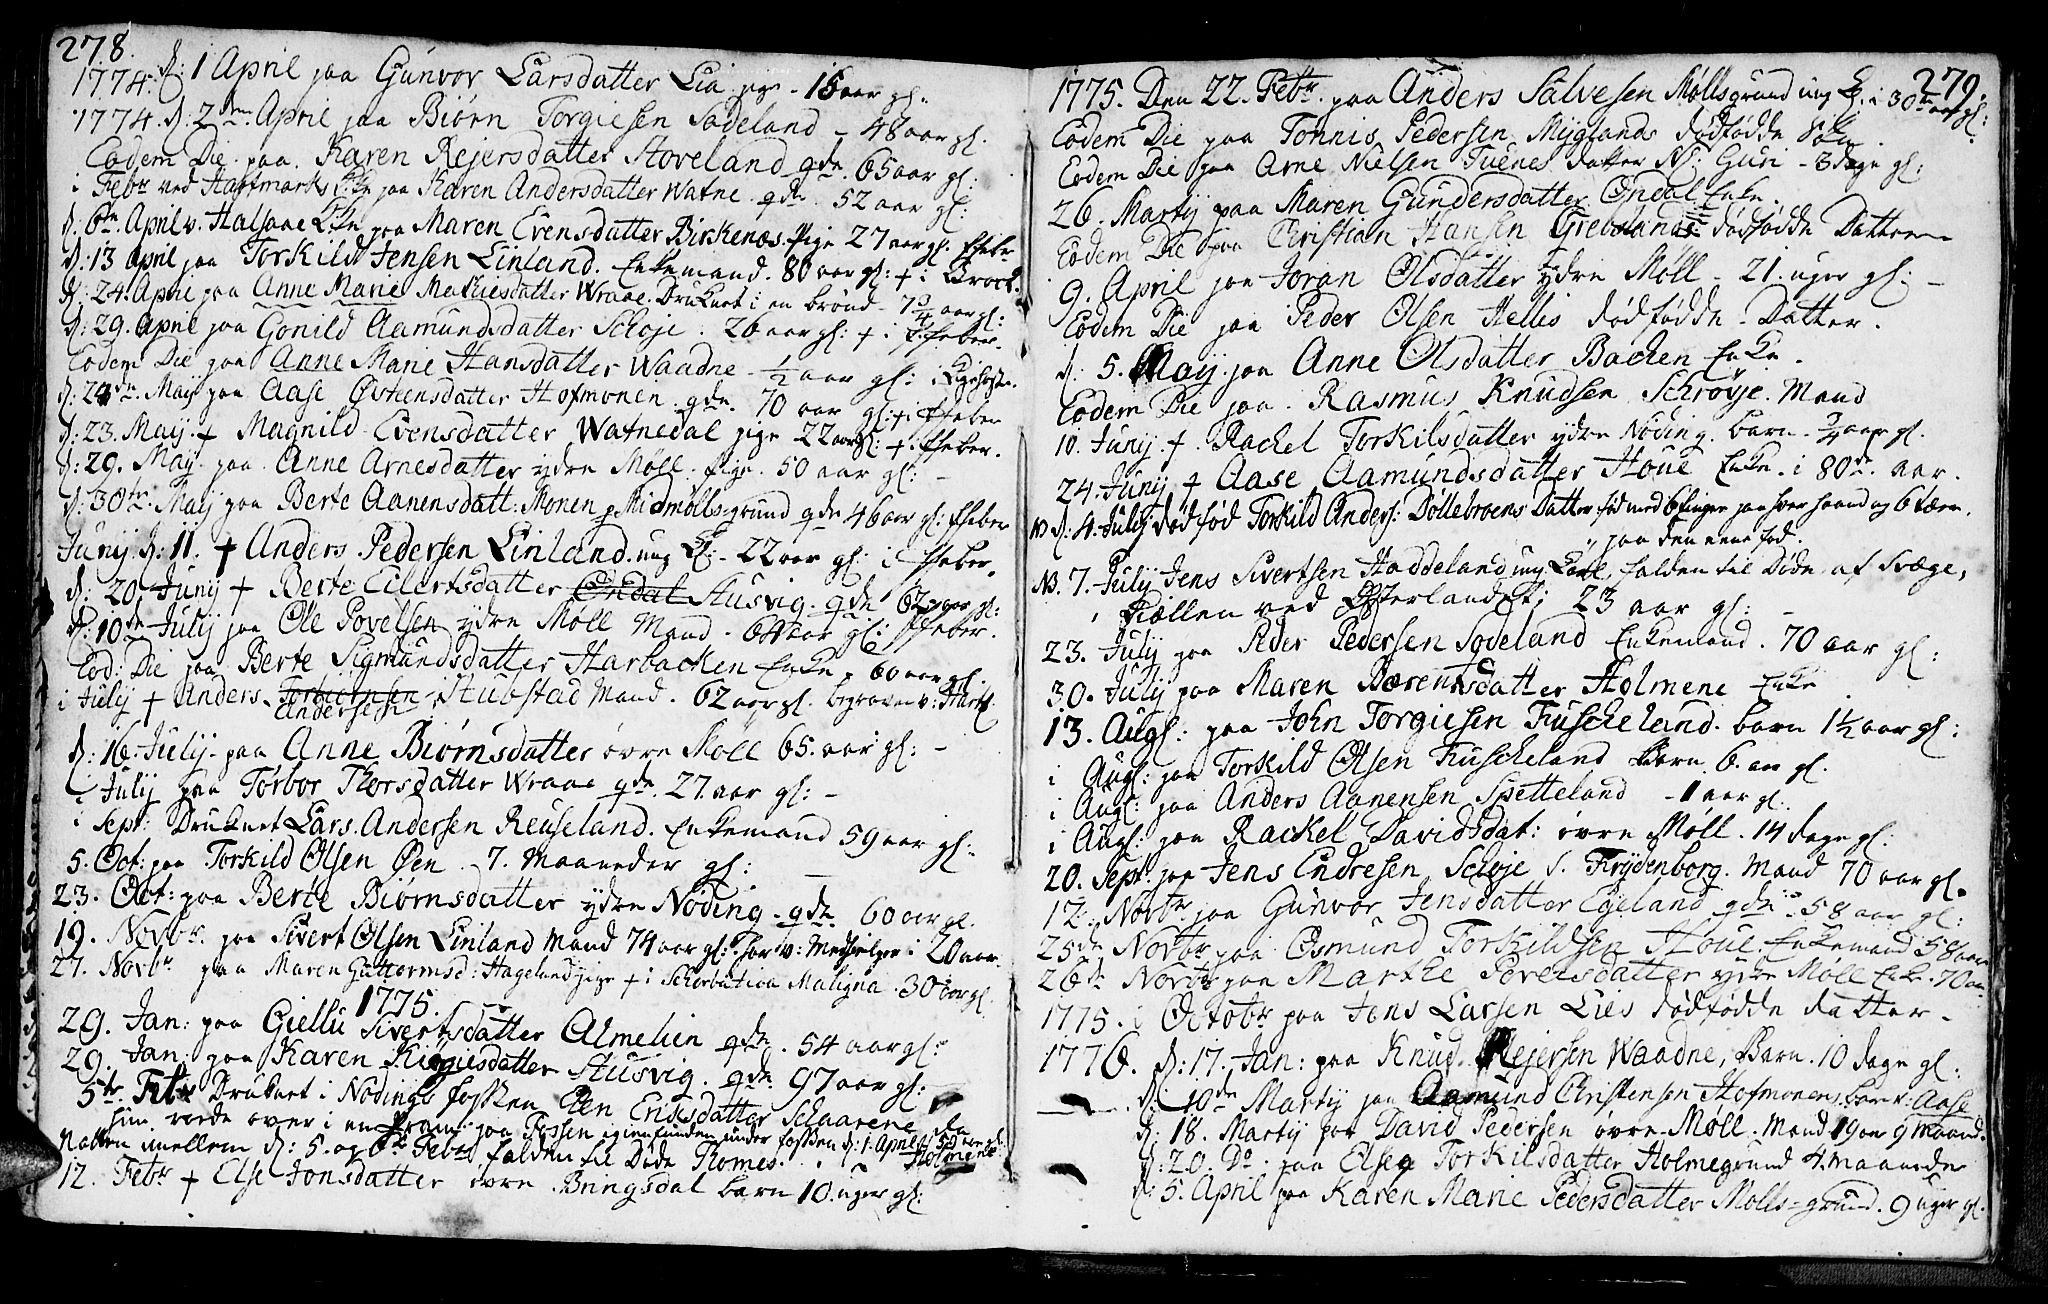 278.
1774. d: 1 April paa Gunvor Larsdatter Lia pige - 16 aar gl:
1774. d: 2den April paa Biørn Torgiesen Sodeland - 48 aar gl.
Eodem Die paa Karen Rejersdatter Stoveland qde. 65 aar gl:
i Febr ved Hartmarks Kirke paa Karen Andersdatter Watne qde 52 aar gl:
d: 6te April v. Halsaae Kirke paa Maren Evensdatter Birkenæs. Pige 27 aar gl.
d: 13 April paa Torkild Jensen Linland. Enkemand. 80 aar gl: + i
d: 24. April paa Anne Marie Matiesdatter Wraae. Druknet i en brønd - 7 3/4 aar gl:
d: 29. April paa Gonild Aamundsdatter Schoje. 26 aar gl: + i
Eodem Die paa Anne Marie Hansdatter Waadne - 1/2 aar gl: i
d: 24de May paa Aase Østensdatter Hofmonen. qde. 70 aar gl: + i
d: 23. Maij + Magnild Evensdatter Watnedal pige 22 aar gl: + i
d: 29. May. paa Anne Arnesdatter ydre Møll. Pige. 50 aar gl: -
d: 30te Maij paa Berte Aanensdatt: Monen p Midmølls-grund qde 46 aar gl:
Junij d: 11. + Anders Pedersen Linland ung K: - 22 aar gl: i
d: 20 Junij + Berte Eilertsdatter Ondal Stusvig. qde 62 aar gl:
d: 10de Julij paa Ole Povelsen ydre Møll Mand - aar gl:
Eod: Die paa Berte Sigmundsdatter Harbacken Enke. 60 aar gl.
i Julij + Anders Torbiørnsen Stubstad Mand. 62 aar gl. begraven v:
Andersen
d: 16 Julij paa Anne Biørnsdatter øvre Møll 65. aar gl: -
i Julij paa Torbor Thorsdatter Wraae qde. 27. aar gl: -
i Sept: Druknet Lars Andersen Reuseland. Enkemand 59 aar gl:
5. Oct: paa Torkild Olsen Øen - 7. Maaneder gl:
23. Oct: paa Berte Biørnsdatter ydre Noding - qde 60 aar gl.
19. Novbr. paa Sivert Olsen Linland Mand 74 aar gl: har v: Medhielper i 20 aar.
27. Novbr paa Maren Guttormsd: Hageland pige + i Schorbutica Maligna. 30 aar gl.
1775.
29. Jan: paa Giellu Sivertsdatter Almelien qde. 54 aar gl:
29. Jan: paa Karen Kiøgiesdatter Stusvig. qde 97 aar gl:
5te Feb Druknet i Nodings fossen Elen Endsdatter Schaarene da
hun roede over i en Pram paa Fossen igienfunden under fossen d: 1. April
Natten imellem d: 5. og 6te Febr falden til Døde Thomes. Holmene
12. Febr + Else Jonsdatter øvre Bringsdal barn 10. uger gl:
279.
1775. Den 22. Febr. paa Anders Salvesen Møllsgrund ung K. i 30te aar gl:
Eodem Die paa Tønnis Pedersen Myglands dødfødde Søn
Eodem Die paa Arne Nielsen Tuenes datter N: Guri - 3 dage gl:
26. Martij paa Maren Gundersdatter Ondal Enke.
Eodem Die paa Christian Hansen Grebstands dødfødde Datter
9. April paa Joran Olsdatter ydre Møll - 21. uger gl: -
Eodem Die paa Peder Olsen Hellis dødfødde - Datter.
d: 5. Maij. paa Anne Olsdatter Backen Enke.
Eodem Die paa. Rasmus Knudsen Schrøvje. Mand
10. Junij +. Rachel Torkilsdatter ydre Noding. barn. 3/4 aar gl.
24. Junij + Aase Aamundsdatter Houe Enke. i 80de. aar.
NB d: 4. Julij dødfød Torkild Anders: Døllebroens Datter fød med 6 finger paa hver haand og 6 tæer.
paa den eene fod.
NB. 7. Julij Jens Sivertsen Haddeland ung Karl, falden til Døde af
Fiællen ved Østerlandet; 23 aar gl: -
23. July paa Peder Pedersen Sodeland Enkemand. 70 aar gl:
30. July paa Maren Bærentsdatter Holmene Enke
13. Aug: paa John Torgiesen Fuscheland. barn 1 1/2 aar gl:
i Aug: paa Torkild Olsen Fuscheland Barn. 6. aar gl.
i Aug: paa Anders Aanensen Spetteland - 1 aar gl.
i Aug: paa Rackel Davidsdat: øvre Møll. 14 dage gl:
20. Sept: paa Jens Endresen Schoje s. Frydenborg. Mand 70 aar gl.
12. Novbr paa Gunvor Jensdatter Egeland qde. 58 aar gl:
25de Novbr paa Osmund Torkildsen Houe. Enkemand 58 aar
26de Novbr paa Marthe Povelsdatter ydre Møll Enke. 70 aar
1775. i Octobr paa Jens Larsen Lies dødfødde datter -
1776. d: 17. Jan: paa Knud Rejersen Waadne, Barn. 10 dage gl:
d: 10de Martij paa Aamund Christensen Hofmonens barn: Aase
d: 18. Martij paa David Pedersen øvre Møll. Mand 19 aar 9 maand.
d: 20. Do. paa Elseg Torkilsdatter Holmegrund 4. maaneder
d: 5. April paa Karen Marie Pedersdatter Mølls-grund. 9 uger gl.